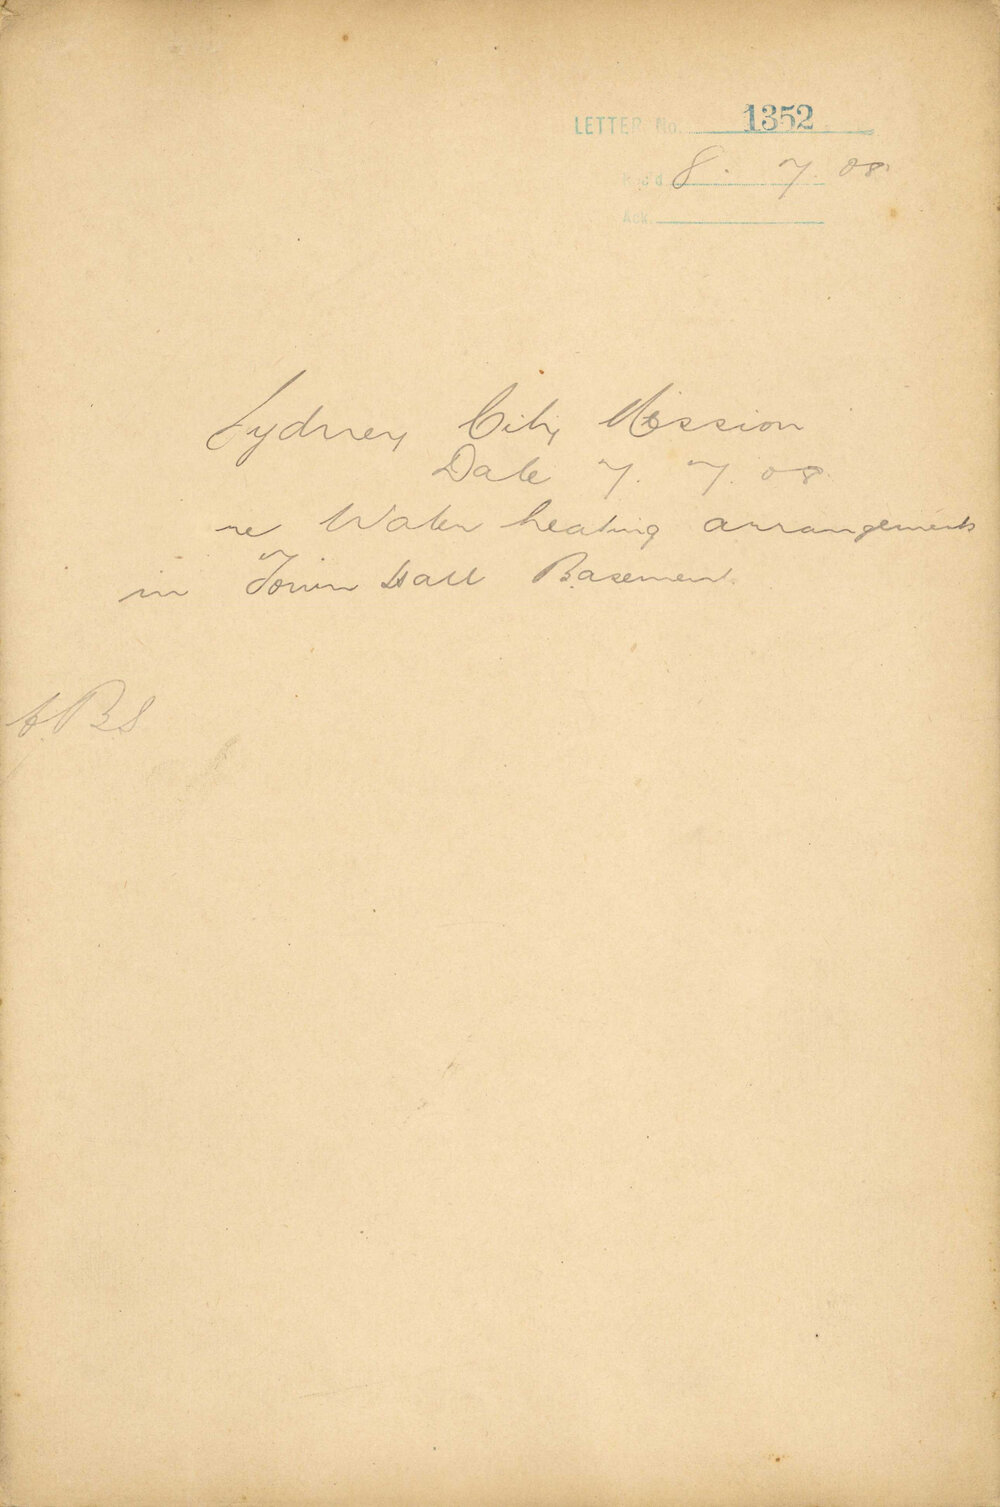 LETTER No. 1352
Rec'd 8. 7. 08.
Ack.
Sydney City Mission
Date 7. 7. 08.
re Water heating arrangements
in Town Hall Basement.